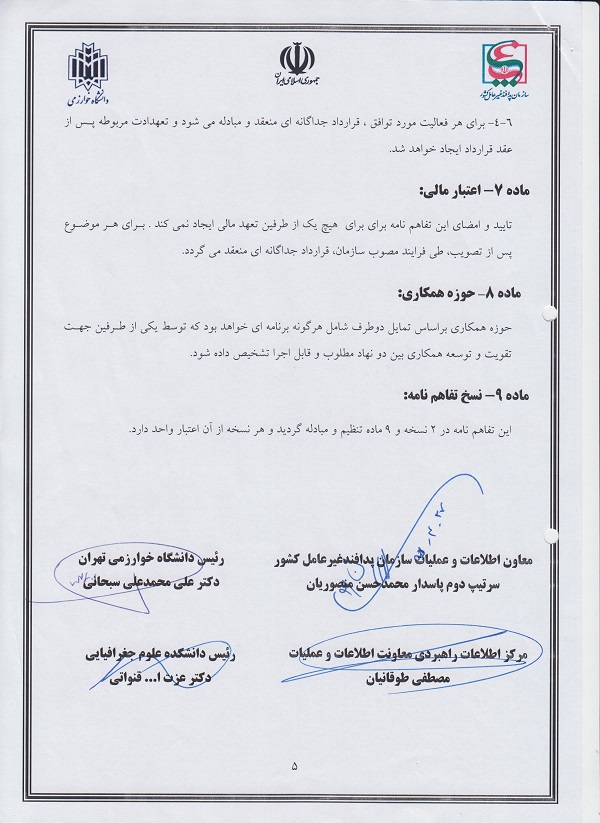 دانشگاه خوارزمی
جمهوری اسلامی ایران
سازمان پدافند غیر عامل کشور
۶-۴- برای هر فعالیت مورد توافق ، قرارداد جداگانه ای منعقد و مبادله می شود و تعهدادت مربوطه پس از
عقد قرارداد ایجاد خواهد شد.
ماده ۷- اعتبار مالی:
تایید و امضای این تفاهم نامه برای برای هیچ یک از طرفین تعهد مالی ایجاد نمی کند . برای هر موضوع
پس از تصویب، طی فرایند مصوب سازمان، قرارداد جداگانه ای منعقد می گردد.
ماده ۸- حوزه همکاری:
حوزه همکاری براساس تمایل دوطرف شامل هرگونه برنامه ای خواهد بود که توسط یکی از طرفین جهت
تقویت و توسعه همکاری بین دو نهاد مطلوب و قابل اجرا تشخیص داده شود.
ماده ۹- نسخ تفاهم نامه:
این تفاهم نامه در ۲ نسخه و ۹ ماده تنظیم و مبادله گردید و هر نسخه از آن اعتبار واحد دارد.
معاون اطلاعات و عملیات سازمان پدافندغیرعامل کشور
سرتیپ دوم پاسدار محمدحسن منصوریان
رئیس دانشگاه خوارزمی تهران
دکتر علی محمدعلی سبحانی
مرکز اطلاعات راهبردی معاونت اطلاعات و عملیات
مصطفی طوقانیان
رئیس دانشکده علوم جغرافیایی
دکتر عزت ا... قنواتی
۵